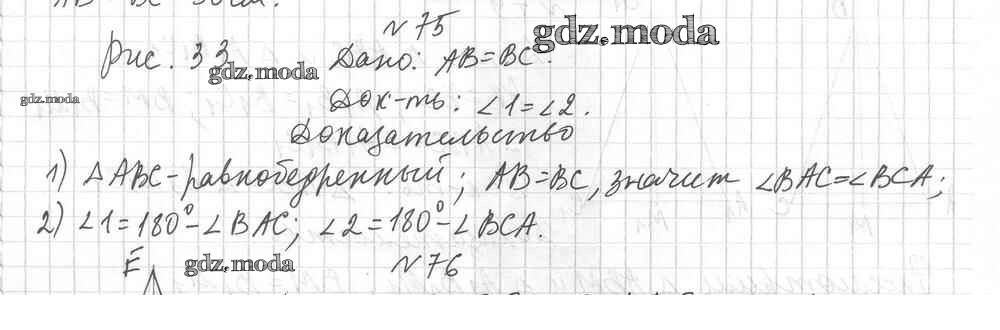 №75
gdz.moda
рис. 33 Дано: AB=BC.
gdz.moda
gdz.moda
Док-ть: ∠1=∠2.
Доказательство
1) △ABC-равнобедренный; AB=BC, значит ∠BAC=∠BCA;
2) ∠1=180°-∠BAC; ∠2=180°-∠BCA.
E gdz.moda №76